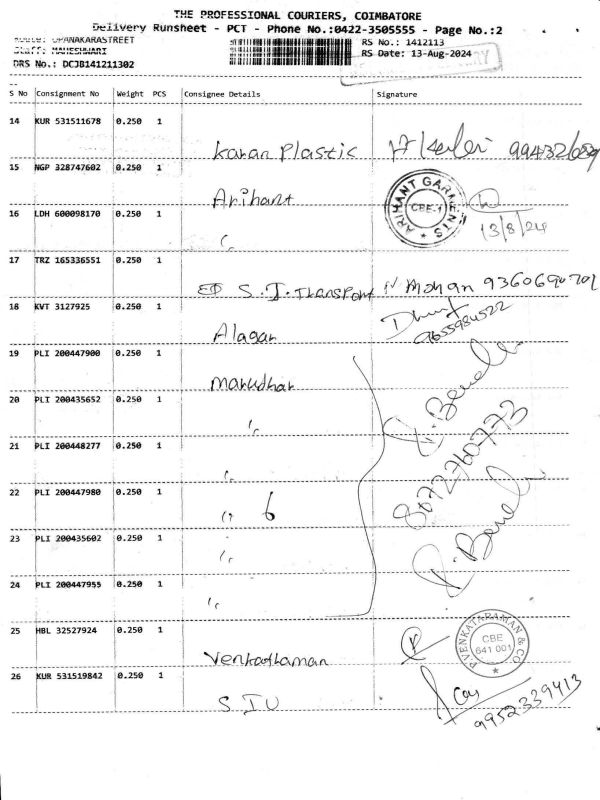 THE PROFESSIONAL COURIERS, COIMBATORE
Delivery Runsheet - PCT - Phone No.:0422-3505555 - Page No.:2
Route: OPANAKARASTREET RS No.: 1412113
Staff: MAHESHWARI RS Date: 13-Aug-2024
DRS No.: DCJB141211302
S No Consignment No Weight PCS Consignee Details Signature
14 KUR 531511678 0.250 1
Karan Plastic
15 NGP 328747602 0.250 1
Arihant ARIHANT GARMENTS CBE-1
16 LDH 600098170 0.250 1
13/8/24
17 TRZ 165336551 0.250 1
S.I. Transport N Mohan 9360690701
18 KVT 3127925 0.250 1
Alagar 9655984522
19 PLI 200447900 0.250 1
Marudhar
20 PLI 200435652 0.250 1
21 PLI 200448277 0.250 1
8072760773
22 PLI 200447980 0.250 1
6
23 PLI 200435602 0.250 1
24 PLI 200447955 0.250 1
25 HBL 32527924 0.250 1
Venkathaman P.VENKATARAMAN & CO CBE 641 001
26 KUR 531519842 0.250 1
S I U 9952339413